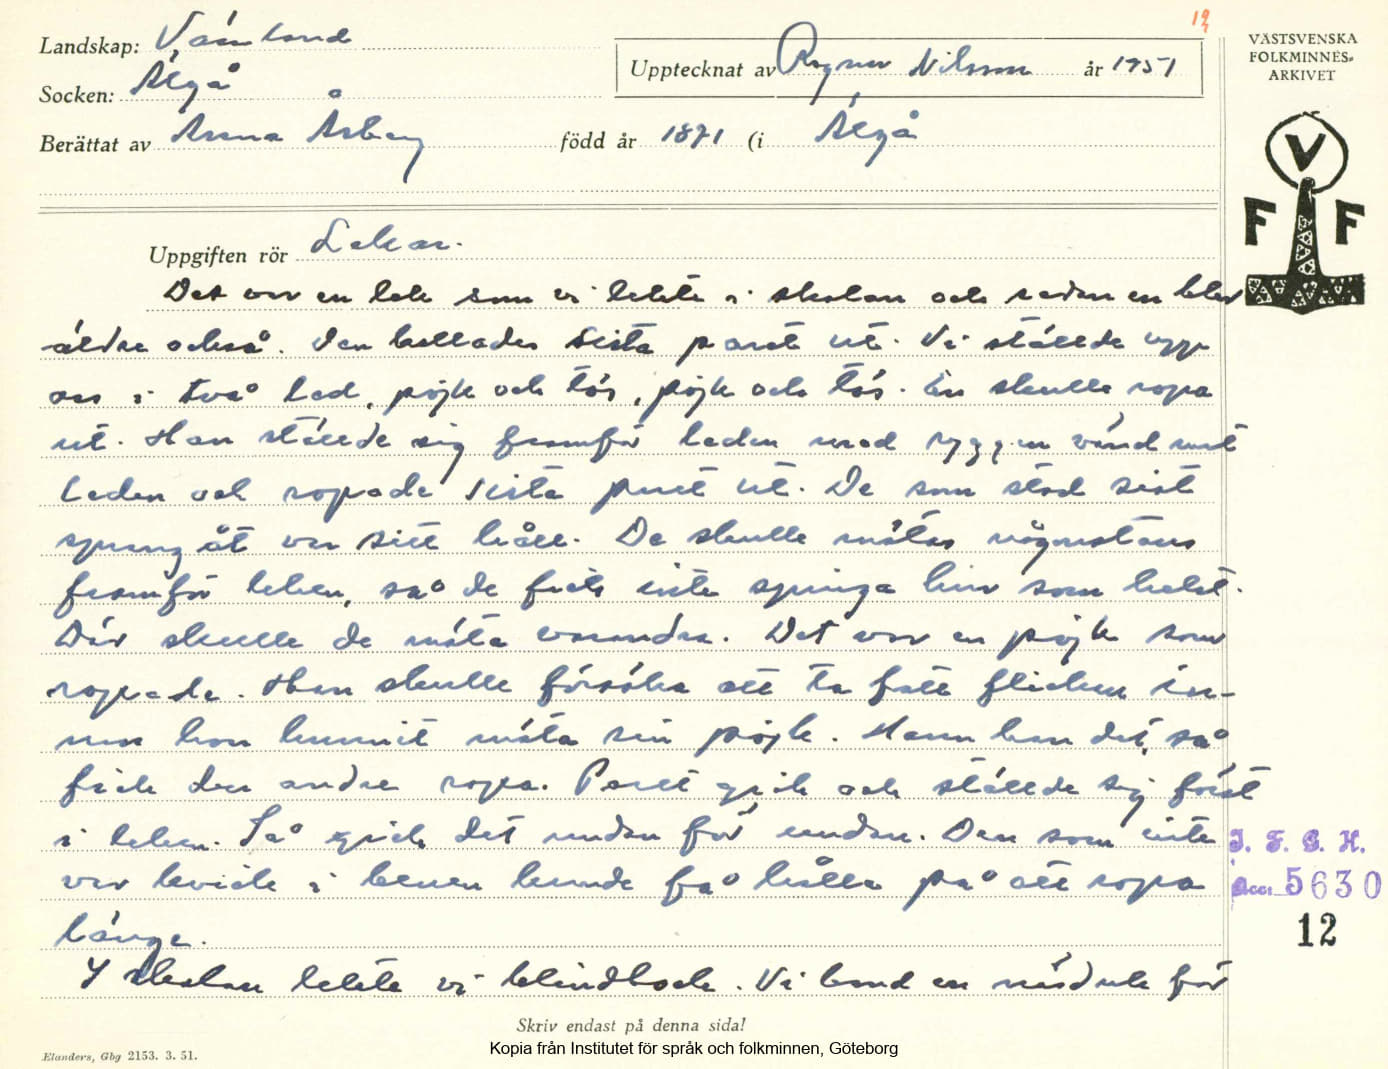 19
Landskap: Värmland
VÄSTSVENSKA
FOLKMINNES-
ARKIVET
Upptecknat av Ragnar Nilsson år 1951
Socken: Älgå
Berättat av Anna Åsberg född år 1871 (i Älgå
V
F F
Uppgiften rör Lekar.
Det var en lek som vi lekte i skolan och sedan en blev
äldre också. Den kallades Sista paret ut. Vi ställde upp
oss i två led, pôjk och tös, pôjk och tös. En skulle ropa
ut. Han ställde sig framför leden med ryggen vänd mot
leden och ropade sista paret ut. De som stod sist
sprang åt var sitt håll. De skulle mötas någonstans
framför leken, så de fick inte springa hur som helst.
Där skulle de möta varandra. Det var en pôjk som
ropade. Han skulle försöka att ta fatt flickan in-
nan hon hunnit möta sin pôjk. Hann han det, så
fick den andre ropa. Paret gick och ställde sig först
i leken. Så gick det undan för undan. Den som inte
var kvick i benen kunde få hålla på att ropa
länge.
I skolan lekte vi blindbock. Vi band en näsduk för
I. F. G. H.
Acc. 5630
12
Skriv endast på denna sida!
Elanders, Gbg 2153. 3. 51.
Kopia från Institutet för språk och folkminnen, Göteborg